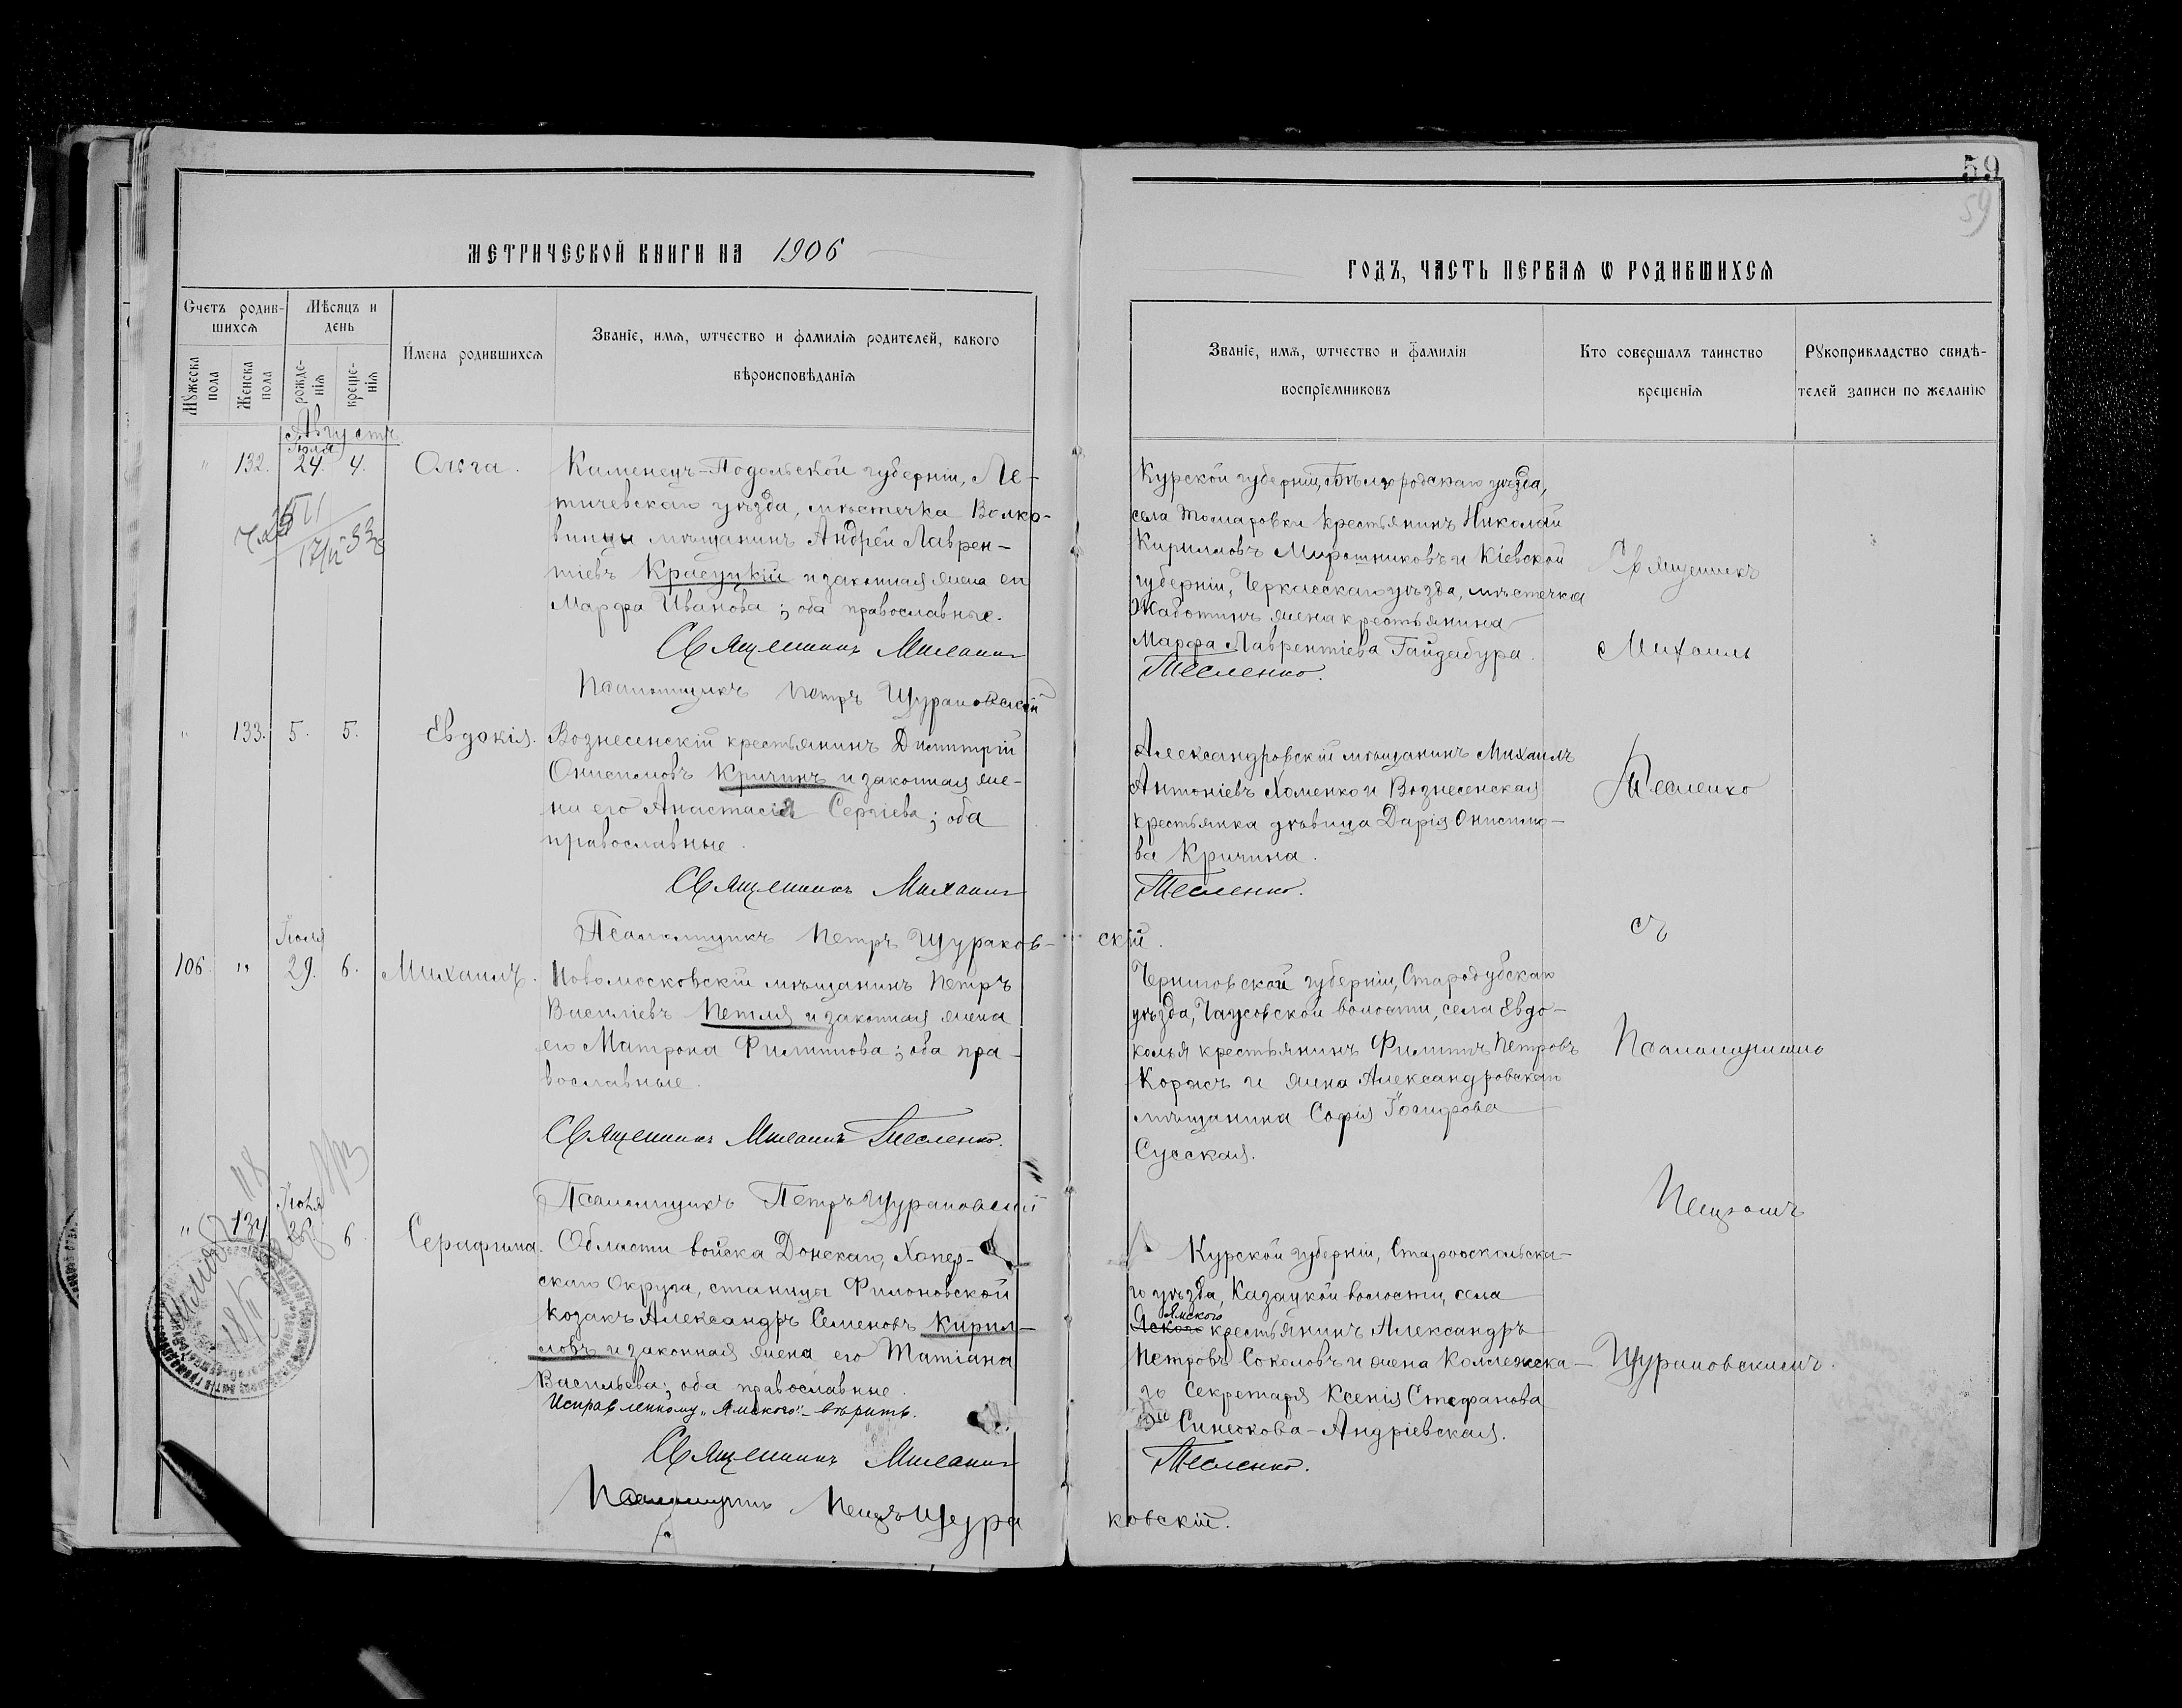 59
59
МЕТРИЧЕСКОЙ КНИГИ НА 1906
ГОДЪ, ЧАСТЬ ПЕРВАЯ Ѡ РОДИВШИХСЯ
Счетъ родив-
шихся
Мѣсяцъ и
день
Мꙋжеска
пола
Женска
пола
рожде-
нія
креще-
нія
Имена родившихся
Званіе, имя, ѡтчество и фамилія родителей, какого
вѣроисповѣданія
Званіе, имя, ѡтчество и фамилія
воспріемниковъ
Кто совершалъ таинство
крещенія
Рꙋкоприкладство свидѣ-
телей записи по желанію
Августъ
Іюля
" 132. 24 4. Ольга.
Каменецъ-Подольской губерніи, Ле-
тичевскаго уѣзда, мѣстечка Волко-
винцы мѣщанинъ Андрей Лаврен-
тіевъ Красуцкій и законная жена его
Марфа Иванова; оба православные.
Священникъ Михаилъ
Псаломщикъ Петръ Щураковскій
Курской губерніи, Бѣлгородскаго уѣзда,
села Томаровки крестьянинъ Николай
Кирилловъ Мирошниковъ и Кіевской
губерніи, Черкасскаго уѣзда, мѣстечка
Жаботинъ жена крестьянина
Марфа Лаврентіева Гайдабура.
Тесленко.
Священникъ
Михаилъ
" 133. 5. 5. Евдокія.
Вознесенскій крестьянинъ Димитрій
Онисимовъ Кричинъ и законная же-
на его Анастасія Сергіева; оба
православные.
Священникъ Михаилъ
Псаломщикъ Петръ Щураков-
скій.
Александровскій мѣщанинъ Михаилъ
Антоніевъ Хоменко и Вознесенская
крестьянка дѣвица Дарія Онисимо-
ва Кричина.
Тесленко.
Тесленко
съ
Іюля
106. " 29. 6. Михаилъ.
Новомосковскій мѣщанинъ Петръ
Василіевъ Петля и законная жена
его Матрона Филиппова; оба пра-
вославные.
Священникъ Михаилъ Тесленко.
Псаломщикъ Петръ Щураковскій
Черниговской губерніи, Стародубскаго
уѣзда, Чаусовской волости, села Евдо-
колья крестьянинъ Филиппъ Петровъ
Коржъ и жена Александровскаго
мѣщанина Софія Іосифова
Сусская.
Псаломщикомъ
Петромъ
118
Іюля
" 134 6. Серафима.
18/II
Области войска Донскаго, Хопер-
скаго Округа, станицы Филоновской
козакъ Александръ Семеновъ Кирил-
ловъ и законная жена его Татіана
Васильева; оба православные.
Исправленному „Ямского" вѣрить.
Священникъ Михаилъ
Псаломщикъ Петръ Щура
ковскій.
Курской губерніи, Старооскольска-
го уѣзда, Казацкой волости, села
Ямского
Яского крестьянинъ Александръ
Петровъ Соколовъ и жена Коллежска-
го Секретаря Ксенія Стефанова
Синескова-Андріевская.
Тесленко.
Щураковскимъ.